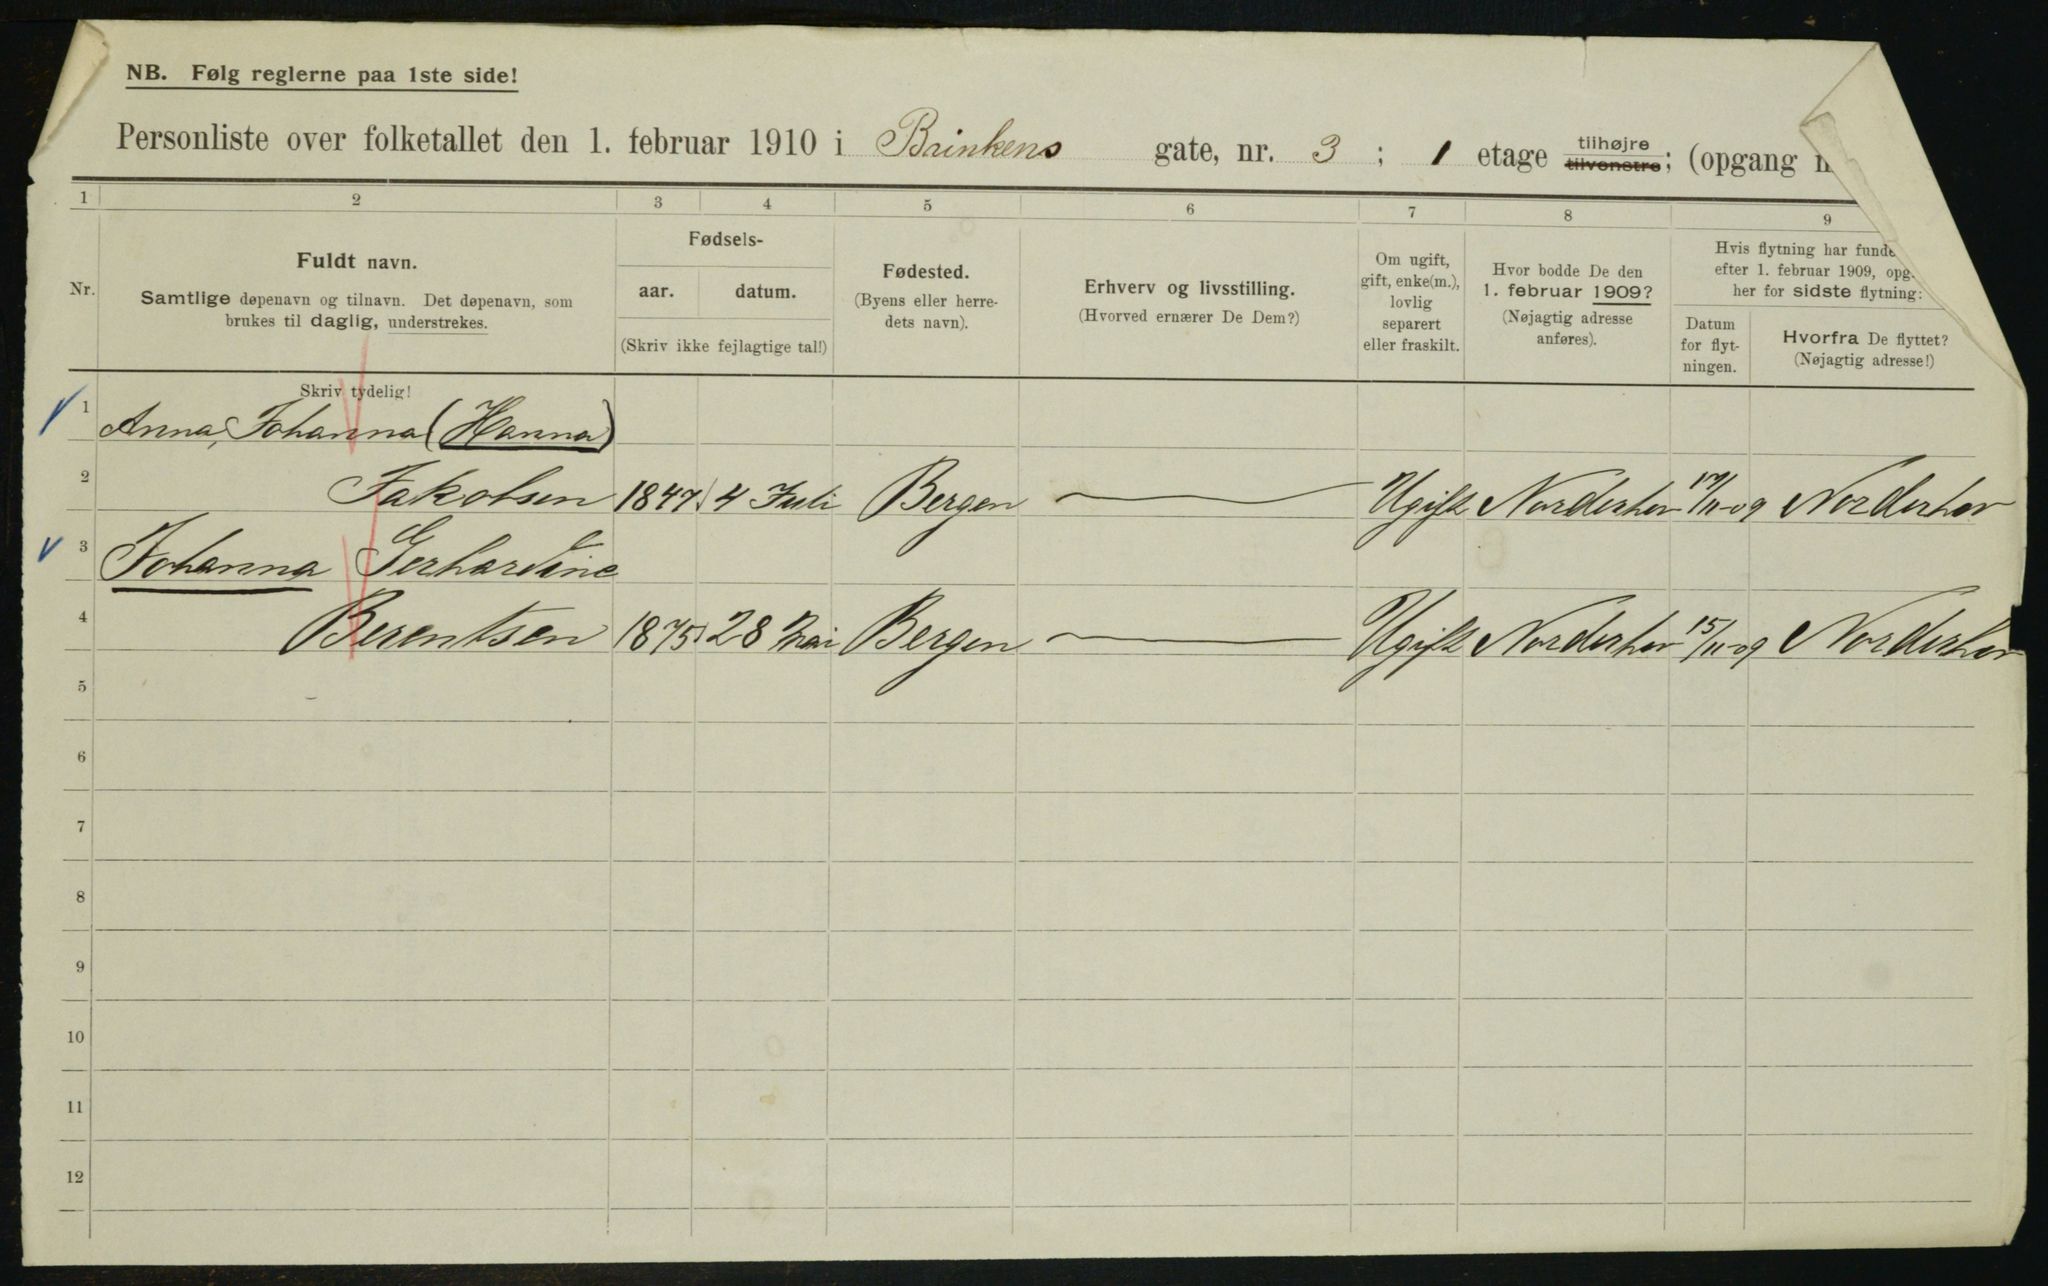 NB. Følg reglerne paa 1ste side!
Personliste over folketallet den 1. februar 1910 i Brinkens gate, nr. 3 ; 1 etage tilhøjre tilvenstre; (opgang
1 2 3 4 5 6 7 8 9
Nr.
Fuldt navn.
Samtlige døpenavn og tilnavn. Det døpenavn, som
brukes til daglig, understrekes.
Skriv tydelig!
Fødsels-
aar. datum.
(Skriv ikke fejlagtige tal!)
Fødested.
(Byens eller herre-
dets navn).
Erhverv og livsstilling.
(Hvorved ernærer De Dem?)
Om ugift,
gift, enke(m.),
lovlig
separert
eller fraskilt.
Hvor bodde De den
1. februar 1909?
(Nøjagtig adresse
anføres).
Hvis flytning har funde
efter 1. februar 1909, opg
her for sidste flytning:
Datum
for flyt-
ningen.
Hvorfra De flyttet?
(Nøjagtig adresse!)
1 Anna, Johanna (Hanna)
2 Jakobsen 1847 4 Juli Bergen Ugift Norderhov 17/11-09 Norderhov
3 Johanna Gerhardine
4 Berentsen 1875 28 Mai Bergen Ugift Norderhov 15/11-09 Norderhov
5
6
7
8
9
10
11
12